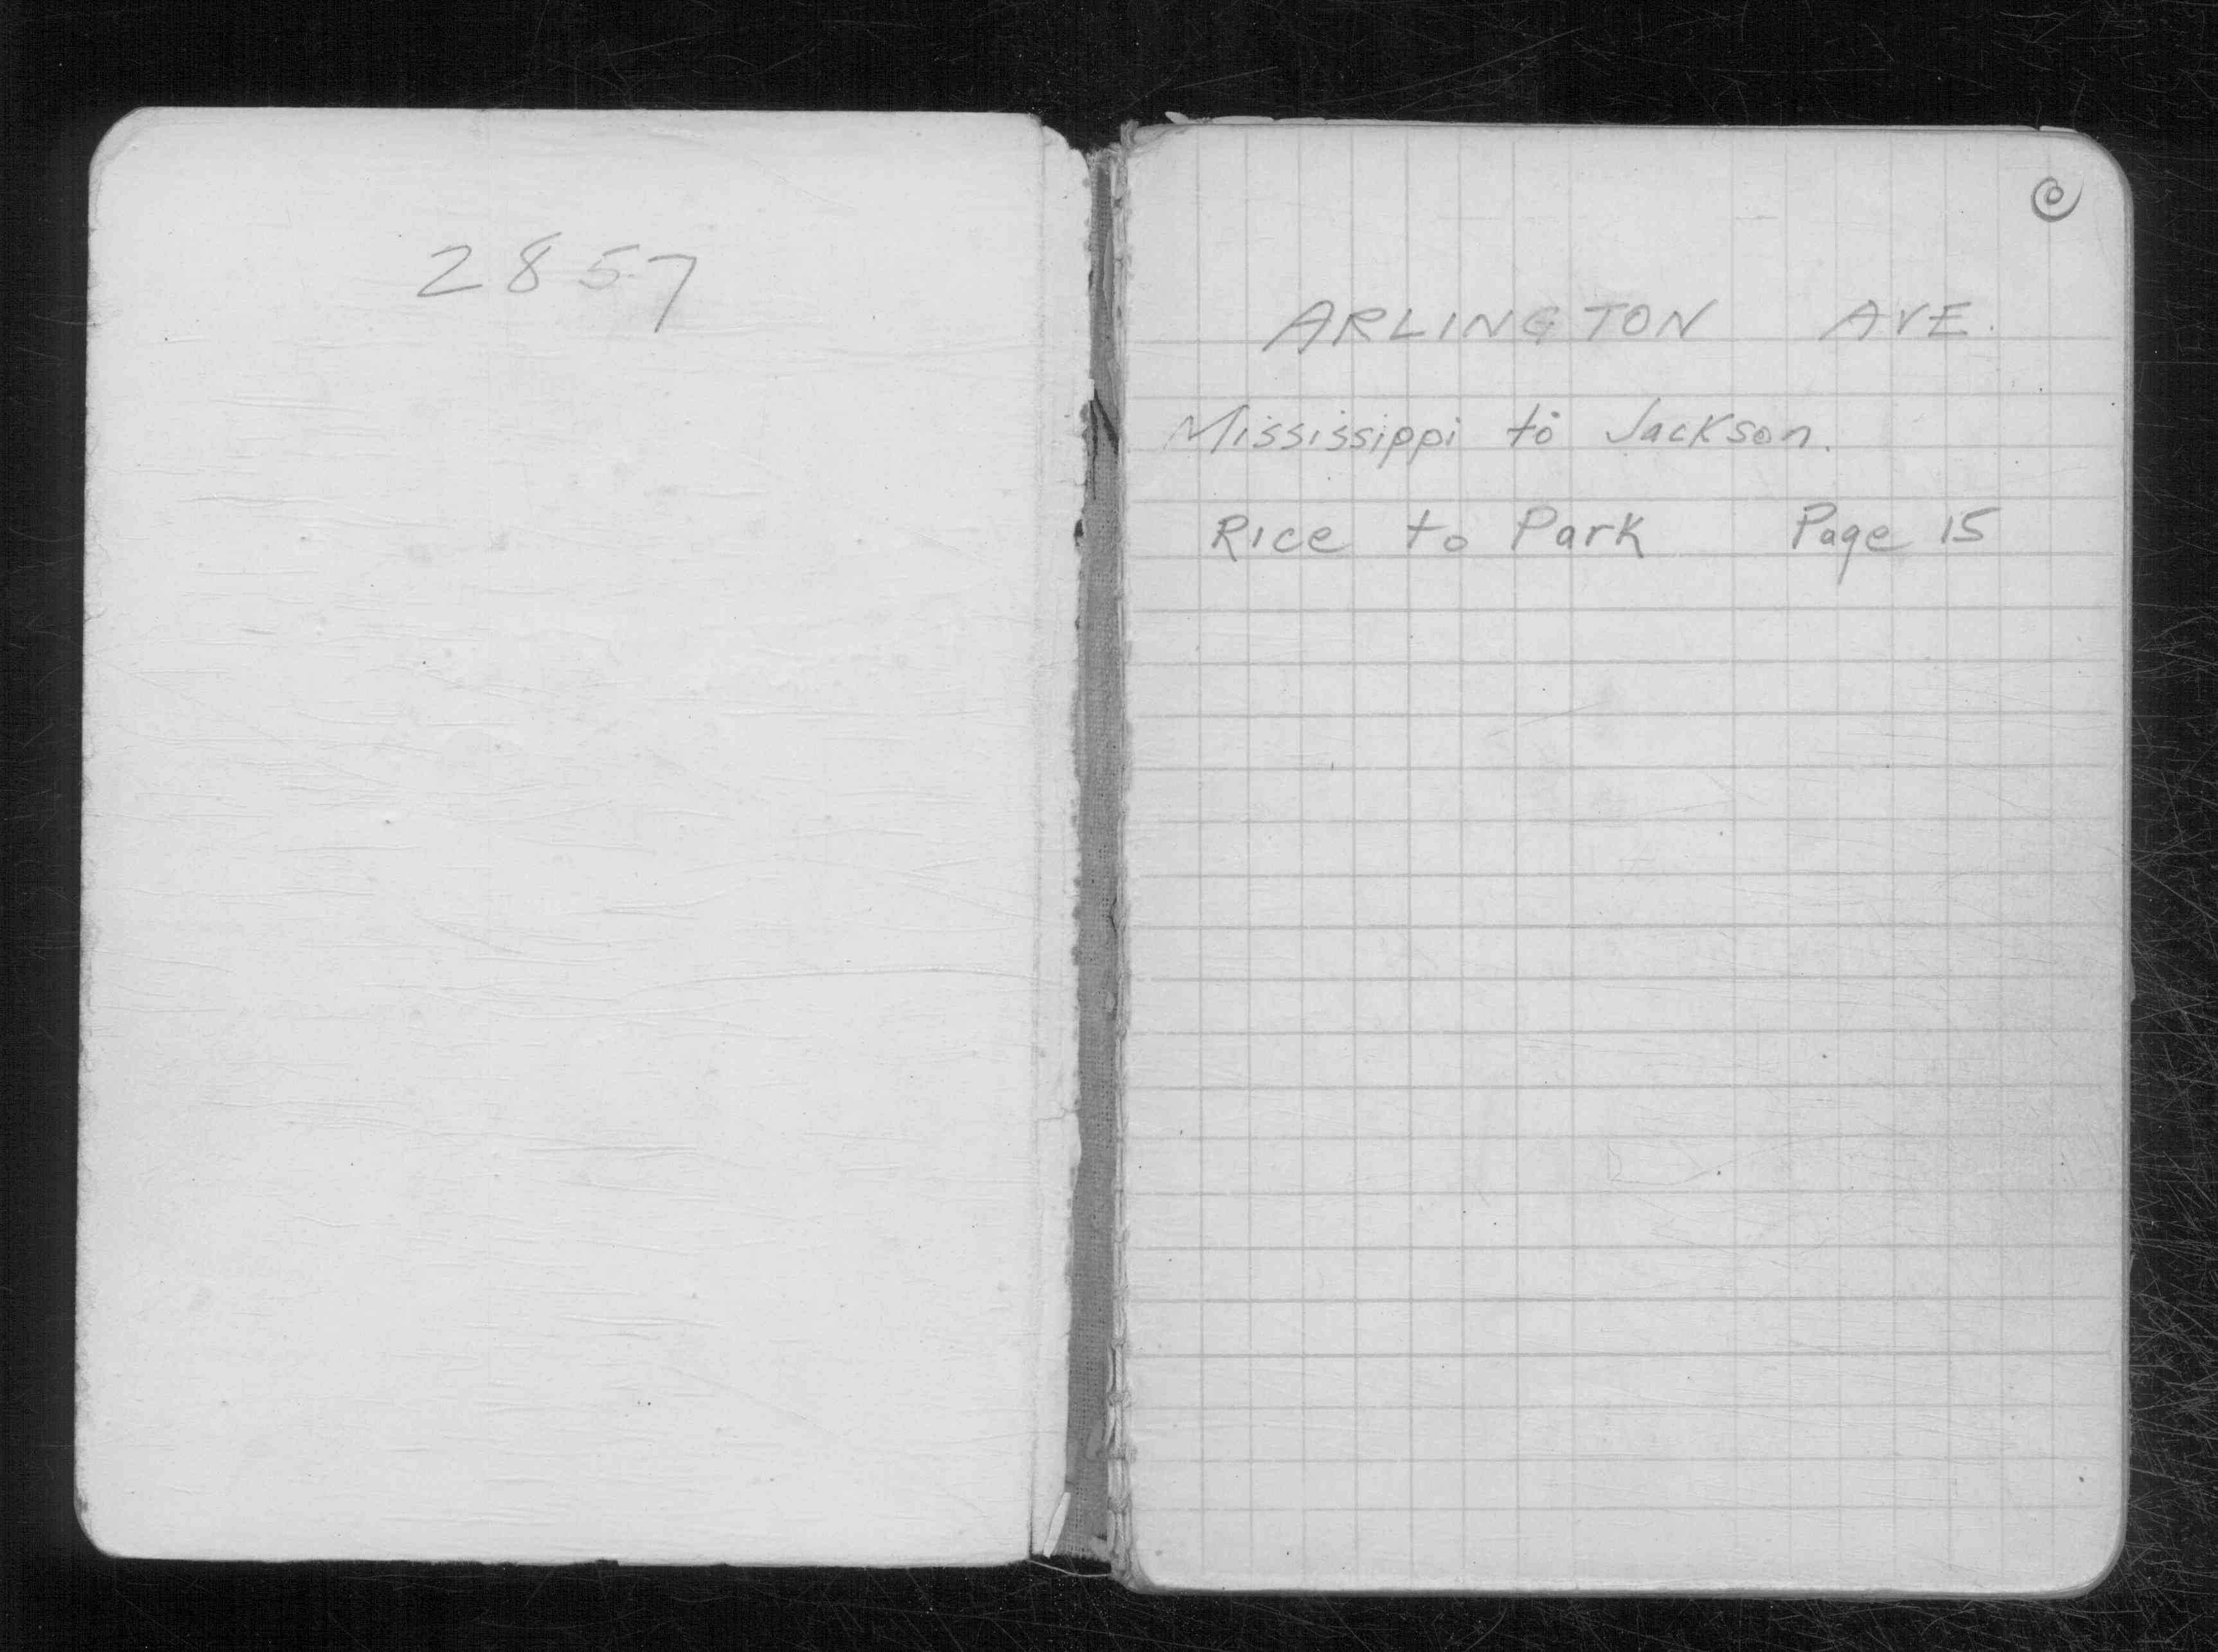 2857
0
ARLINGTON AVE.
Mississippi to Jackson.
Rice to Park Page 15